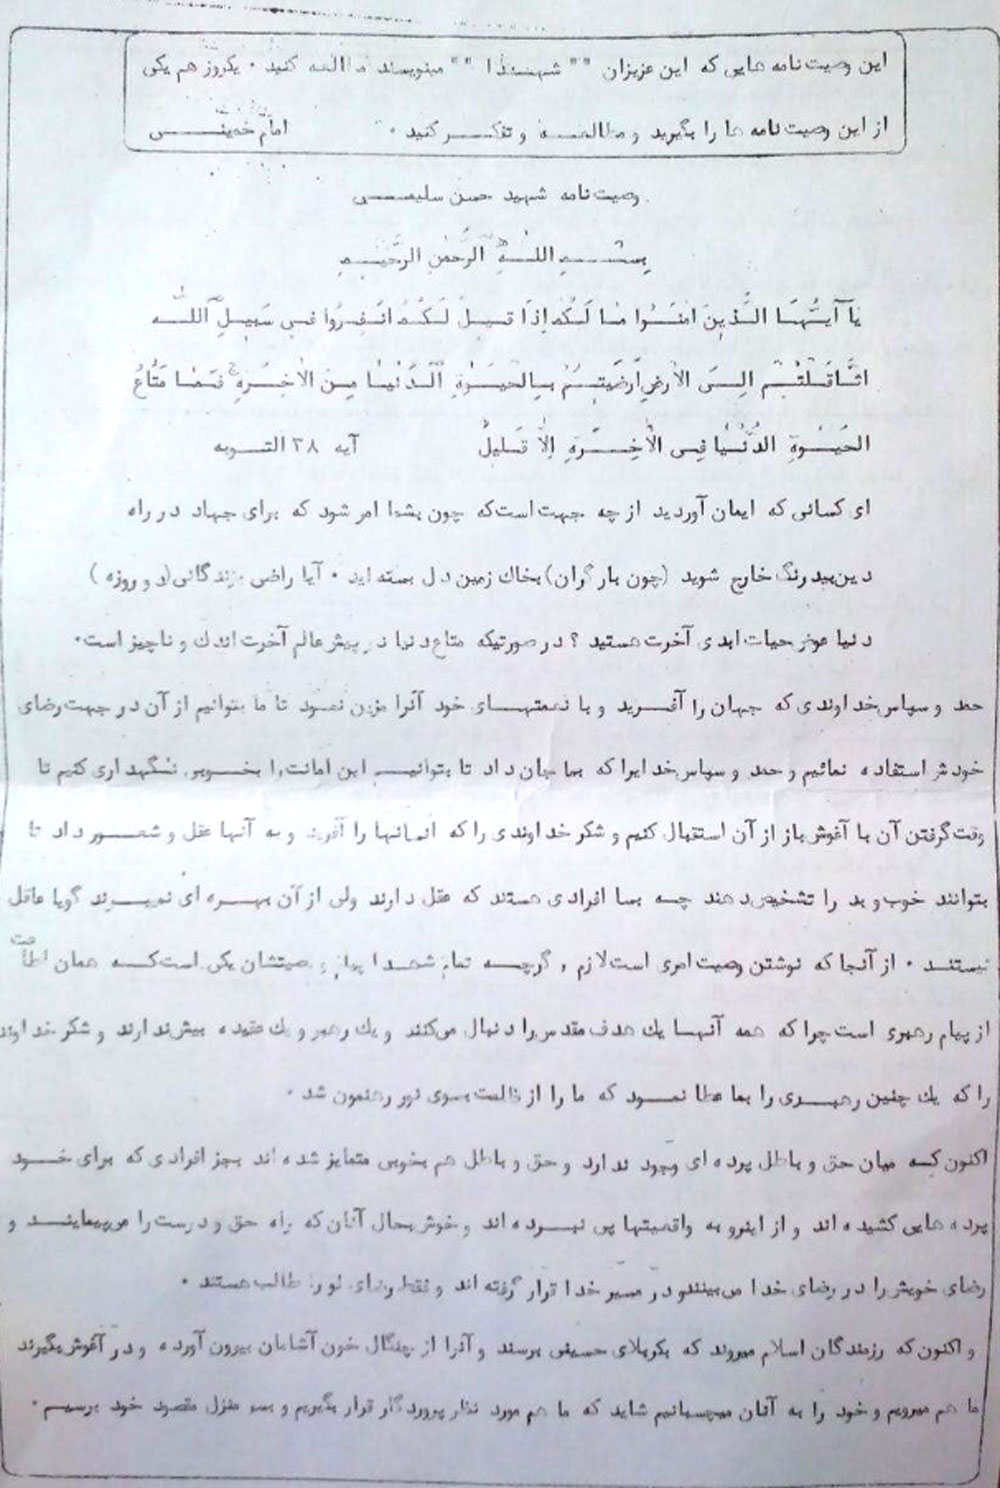 این وصیت نامه هایی که این عزیزان " " شهـدا " " مینویسند مطالعه کنید ۰ یکروز هم یکی
از این وصیت نامه ها را بگیرید و مطالعه و تفکر کنید ۰ امام خمینی
وصیت نامه شهید حسن سلیمی
بسم الله الرحمن الرحیم
یا آیها الذین امنوا ما لکم اذا قیل لکم انفروا فی سبیل الله
اثاقلتم الی الارض ارضیتم بالحیوة الدنیا من الاخرة فما متاع
الحیوة الدنیا فی الاخرة الا قلیل آیه ۳۸ التوبه
ای کسانی که ایمان آوردید از چه جهت است که چون بشما امر شود که برای جهاد در راه
دین بیدرنگ خارج شوید (چون بار گران) بخاک زمین دل بسته اید ۰ آیا راضی بزندگانی (دو روزه )
دنیا عوض حیات ابدی آخرت هستید ؟ در صورتیکه متاع دنیا در پیش عالم آخرت اندک و ناچیز است۰
حمد و سپاس خداوندی که جهان را آفرید و با نعمتهای خود آنرا مزین نمود تا ما بتوانیم از آن در جهت رضای
خودش استفاده نمائیم و حمد و سپاس خدایرا که بما جان داد تا بتوانیم این امانت را بخوبی نگهداری کنیم تا
وقت گرفتن آن با آغوش باز از آن استقبال کنیم و شکر خداوندی را که انسانها را آفرید و به آنها عقل و شعور داد تا
بتوانند خوب و بد را تشخیص دهند چه بسا افرادی هستند که عقل دارند ولی از آن بهره ای نمیبرند گویا عاقل
نیستند ۰ از آنجا که نوشتن وصیت امری است لازم ، گرچه تمام شهدا پیام و وصیتشان یکی است که همان اطاعت
از پیام رهبری است چرا که همه آنها یک هدف مقدس را دنبال می‌کنند و یک رهبر و یک عقیده بیش ندارند و شکر خداوند
را که یک چنین رهبری را بما عطا نمود که ما را از ظلمت بسوی نور رهنمون شد ۰
اکنون که میان حق و باطل پرده ای وجود ندارد و حق و باطل هم بخوبی متمایز شده اند بجز افرادی که برای خود
پرده هایی کشیده اند و از اینرو به واقعیتها پی نبرده اند و خوش بحال آنان که راه حق و درست را می‌پیمایند و
رضای خویش را در رضای خدا می‌بینند و در مسیر خدا قرار گرفته اند و فقط رضای او را طالب هستند ۰
و اکنون که رزمندگان اسلام میروند که بکربلای حسینی برسند و آنرا از چنگال خون آشامان بیرون آورده و در آغوش بگیرند
ما هم میرویم و خود را به آنان میچسبانیم شاید که ما هم مورد نظر پروردگار قرار بگیریم و بسر منزل مقصود خود برسیم ۰